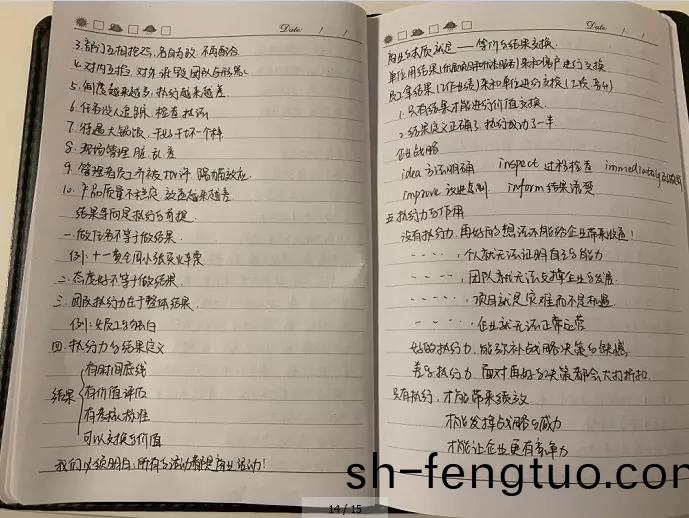 Date: / /
3.部门互相推诿，各自为政 不再配合
4.对内互掐 对外诋毁团队与形象
5.制度越来越多，执行越来越差
6.任务没人追踪、检查、执行
7.待遇大锅饭，干与干坏一个样
8.现场管理脏乱差
9.管理者员工
10.产品质量不稳定 效益越来越差
结果导向是执行的前提
一.做任务不等于做结果
例:十一黄金周小张买火车票
二.态度好不等于做结果
三.团队执行力在于整体结果
例:
四.执行力的结果定义
结果
有时间底线
有价值评估
有考核标准
可以交换的价值
我们必须明白:所有的活动都是商业活动!
Date: / /
商业的本质就是——等价的结果交换
单位用结果(产品或服务)来和客户进行交换
员工拿结果(工作业绩)来和单位进行交换(工资、奖金)
1.只有结果才能进行价值交换
2.结果定义正确了 执行成功了一半
企业战略
idea 方法明确 inspect 过程检查 immediately
improve 改进 inform 结果
五.执行力的作用
没有执行力，再好的想法不能给企业带来收益!
-----，个人就无法证明自己的能力
-----，团队就无法支撑企业的发展
-----，项目就是灾难而不是机遇
-----，企业就无法正常运营
好的执行力，能弥补战略决策的缺憾
差的执行力 面对再好的决策都会大打折扣
只有执行，才能带来绩效
才能发挥战略的威力
才能让企业更有竞争力
sh-fengtuo.com
14 / 15